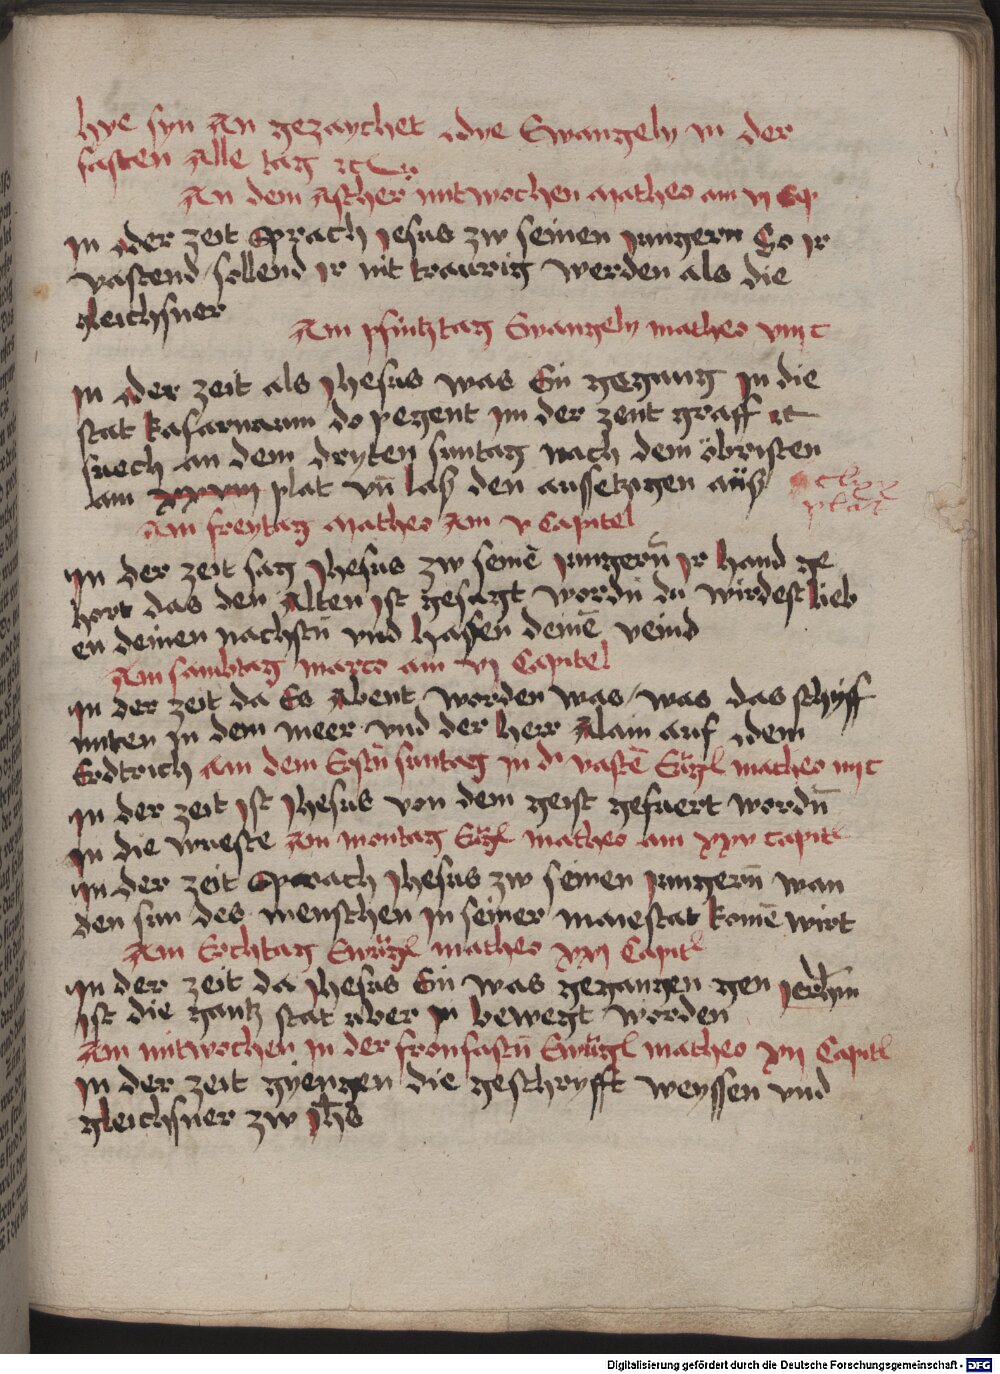 hye syn An gezaychet dye Ewangely in der
fasten Alle tag
An dem Ascher mitwochen Matheo am vj Cap
In der zeit Sprach Jesus zw seinen Jungern So Ir
vastend / sollend Ir nit traurig werden als die
gleichsner
Am pfintztag Ewangely matheo viij c
In der zeit als Jhesus was Ein gegang In die
stat kafarnaum do pegent im der zent graff
suech an dem dryten suntag nach dem öbristen
am xxviij plat vn̄ lasz den aussetzigen aüsz
plat
Am freytag Matheo Am v Capitel
In der zeit sag Jhesus zw seinē Jungern̄ Ir hand ge
hort das den Alten Ist gesagt wordn̄ du wirdest lieb
en deinen nachstn̄ vnd hassen deinē veind
Am sambtag marco am vj Capitel
In der zeit da Es Abent worden was / was das schyff
miten In dem meer vnd der herr Alain auf dem
Erdtrich Am dem Erstn̄ suntag in d' vastē Ewgl matheo iiij c
In der zeit Ist Jhesus von dem geist gefuert wordn̄
In die wueste Am montag Ewgl matheo am xxv capitl
In der zeit Sprach Jhesus zw seinen Jungern̄ wan
den sun des menschen In seiner maiestat komē wirt
Am Erchtag Ewgl matheo xxj Capitl
In der zeit da Jhesus Ein was gegangen gen Jerlm
Ist die gantz stat aber In bewegt worden
Am mitwochen In der fronfastn̄ Ewgl matheo xij Capitl
In der zeit gyengen die geschryfft weyssen vnd
gleichsner zw Jhs
Digitalisierung gefördert durch die Deutsche Forschungsgemeinschaft - DFG